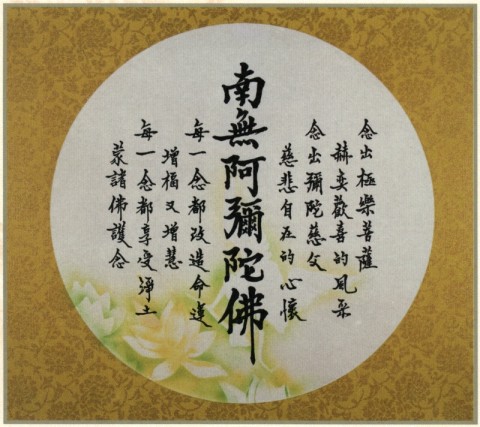 念出極樂菩薩
赫奕歡喜的風采
念出彌陀慈父
慈悲自在的心懷
南無阿彌陀佛
每一念都改造命運
增福又增慧
每一念都享受淨土
蒙諸佛護念